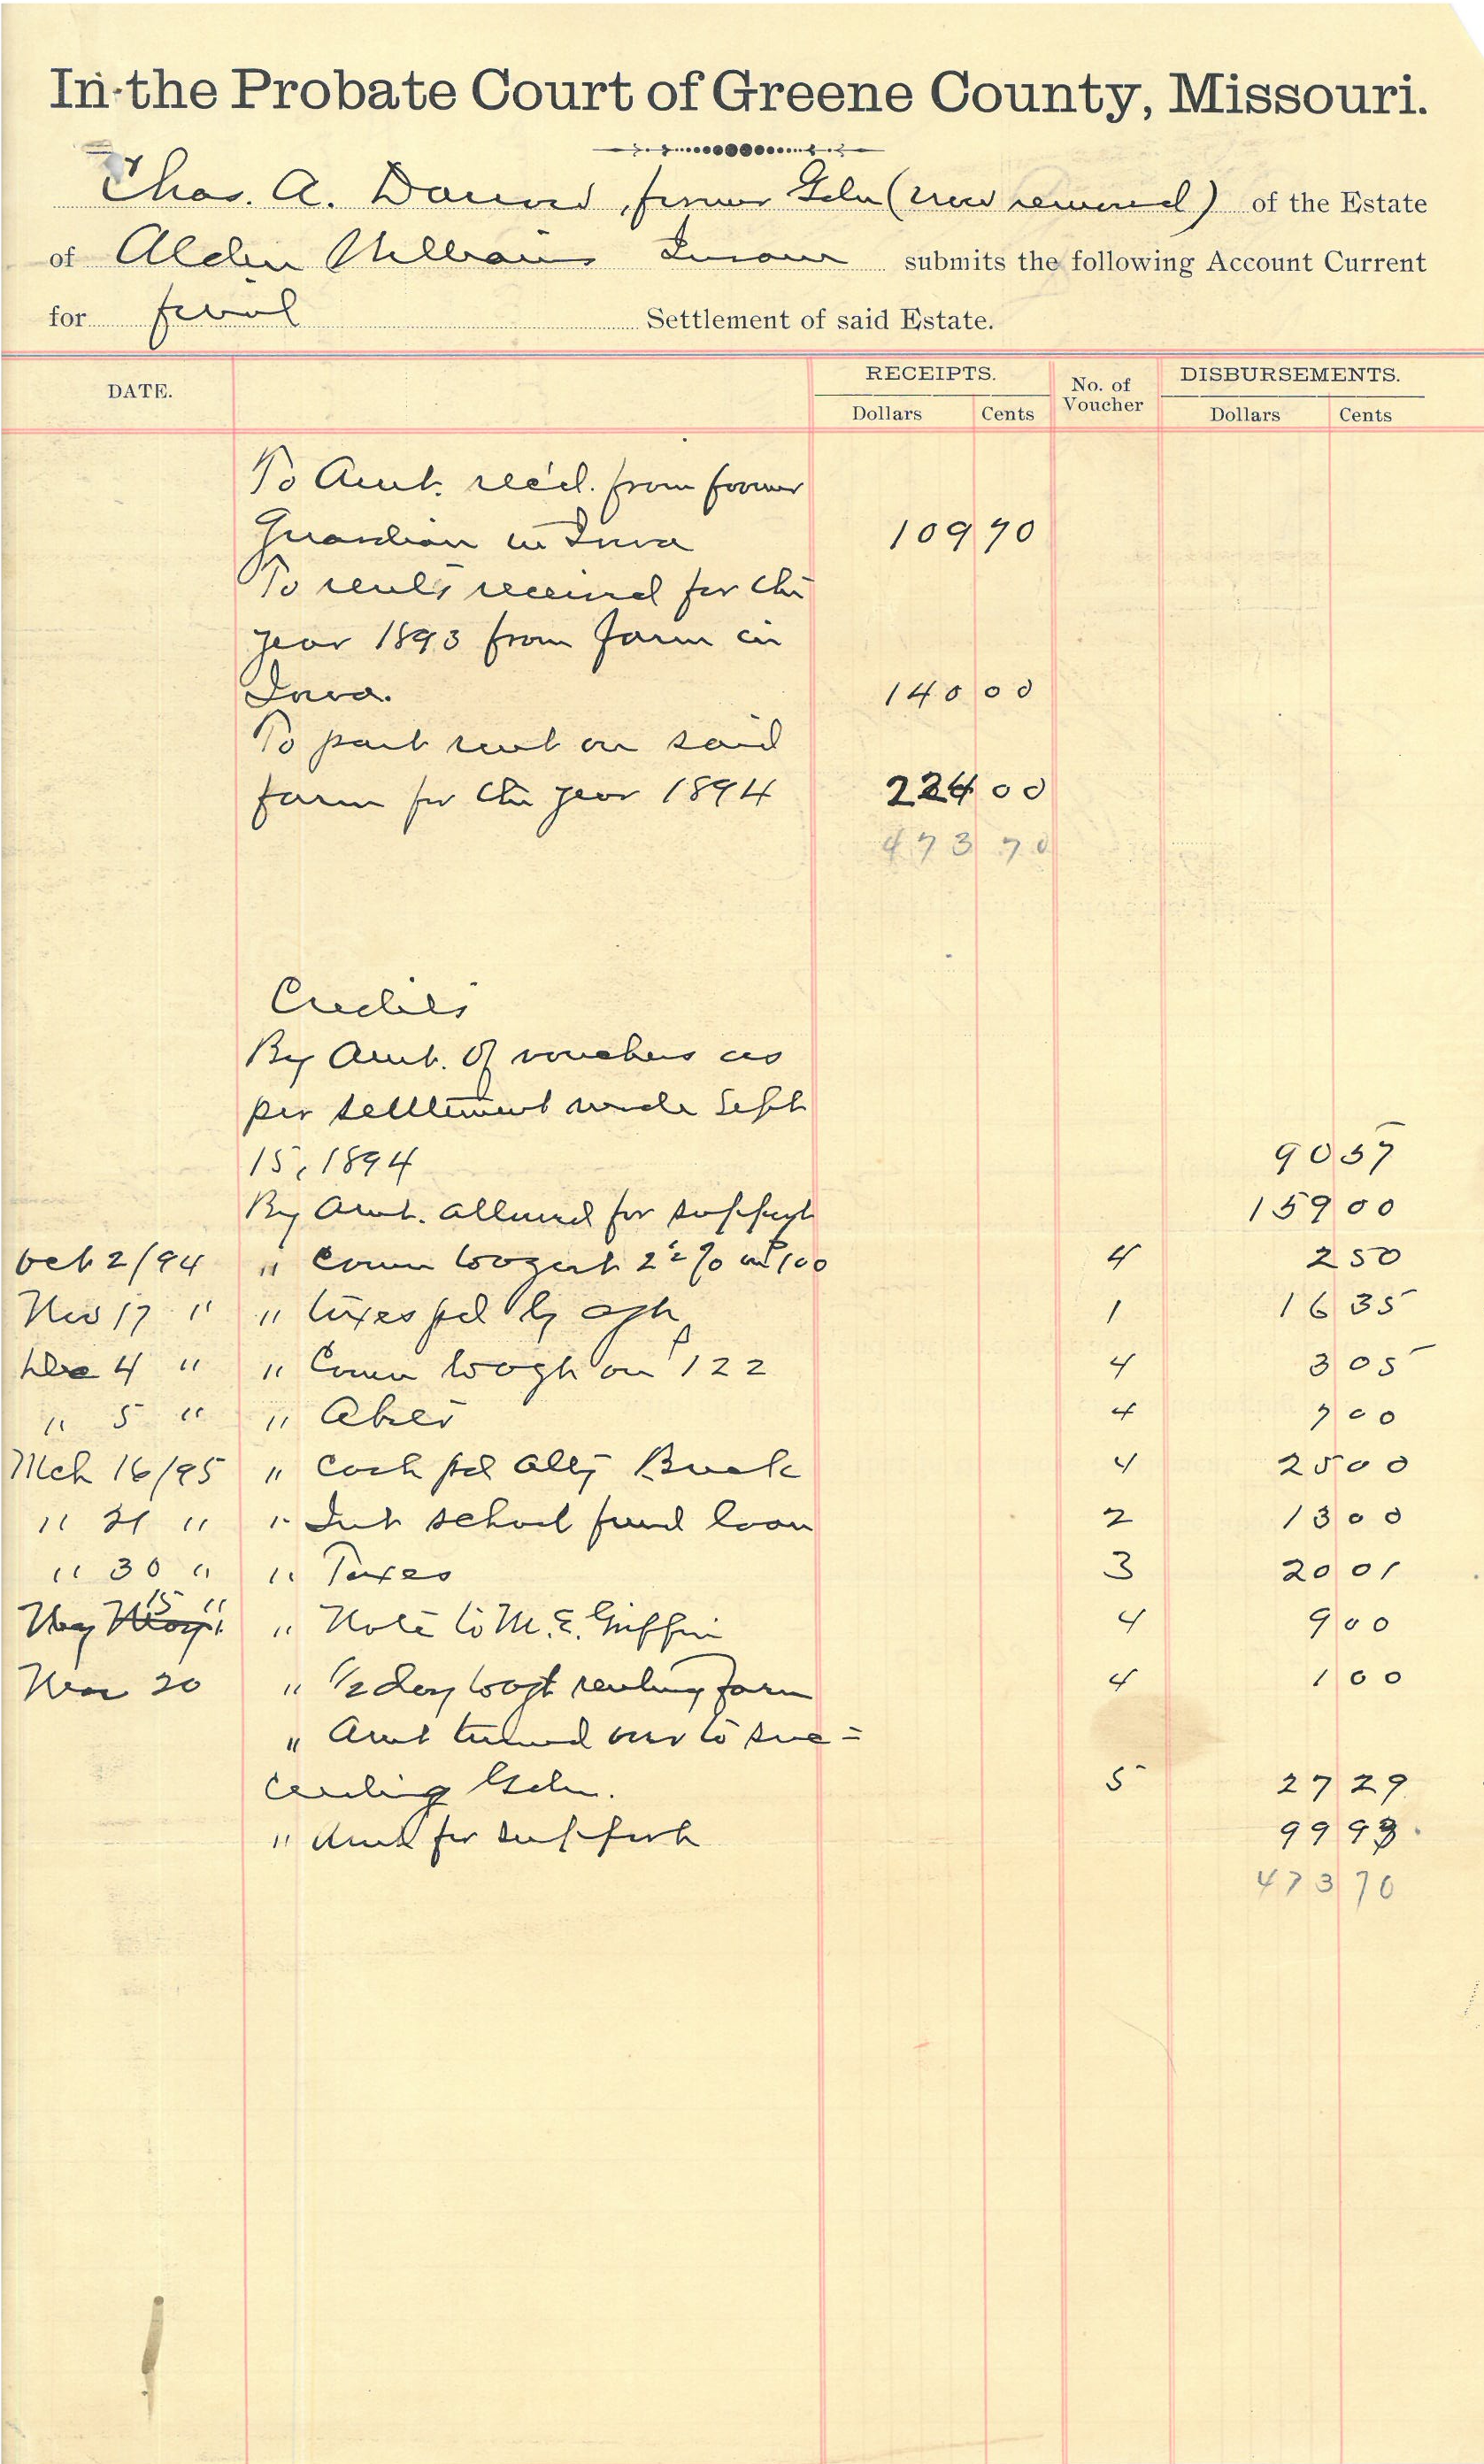 In the Probate Court of Greene County, Missouri.
Chas. A. former Gdn (now removed) of the Estate
of Alden Williams Insane submits the following Account Current
for final Settlement of said Estate.
DATE. RECEIPTS. No. of Voucher DISBURSEMENTS.
Dollars Cents Dollars Cents
To Amt. rec'd. from former
Guardian in Iowa 109 70
To rents received for the
year 1893 from farm in
Iowa. 140 00
To part rent on said
farm for the year 1894 224 00
473 70
Credits
By Amt. of vouchers as
per settlement made Sept
15, 1894 90 57
By Amt. allowed for support 159 00
Oct 2/94 " Comn 2½% on $100 4 2 50
Nov 17 " " taxes pd by agt 1 16 35
Dec 4 " " Comn on $122 4 3 05
" 5 " " 4 7 00
Mch 16/95 " Cash pd Atty Buck 4 25 00
" 21 " " Int school fund loan 2 13 00
" 30 " " Taxes 3 20 01
May 15 " " Note to M. E. Griffin 4 9 00
20 " ½ day renting farm 4 1 00
" Amt turned over to suc=
ceeding Gdn. 5 27 29
" Amt for support 99 93
473 70